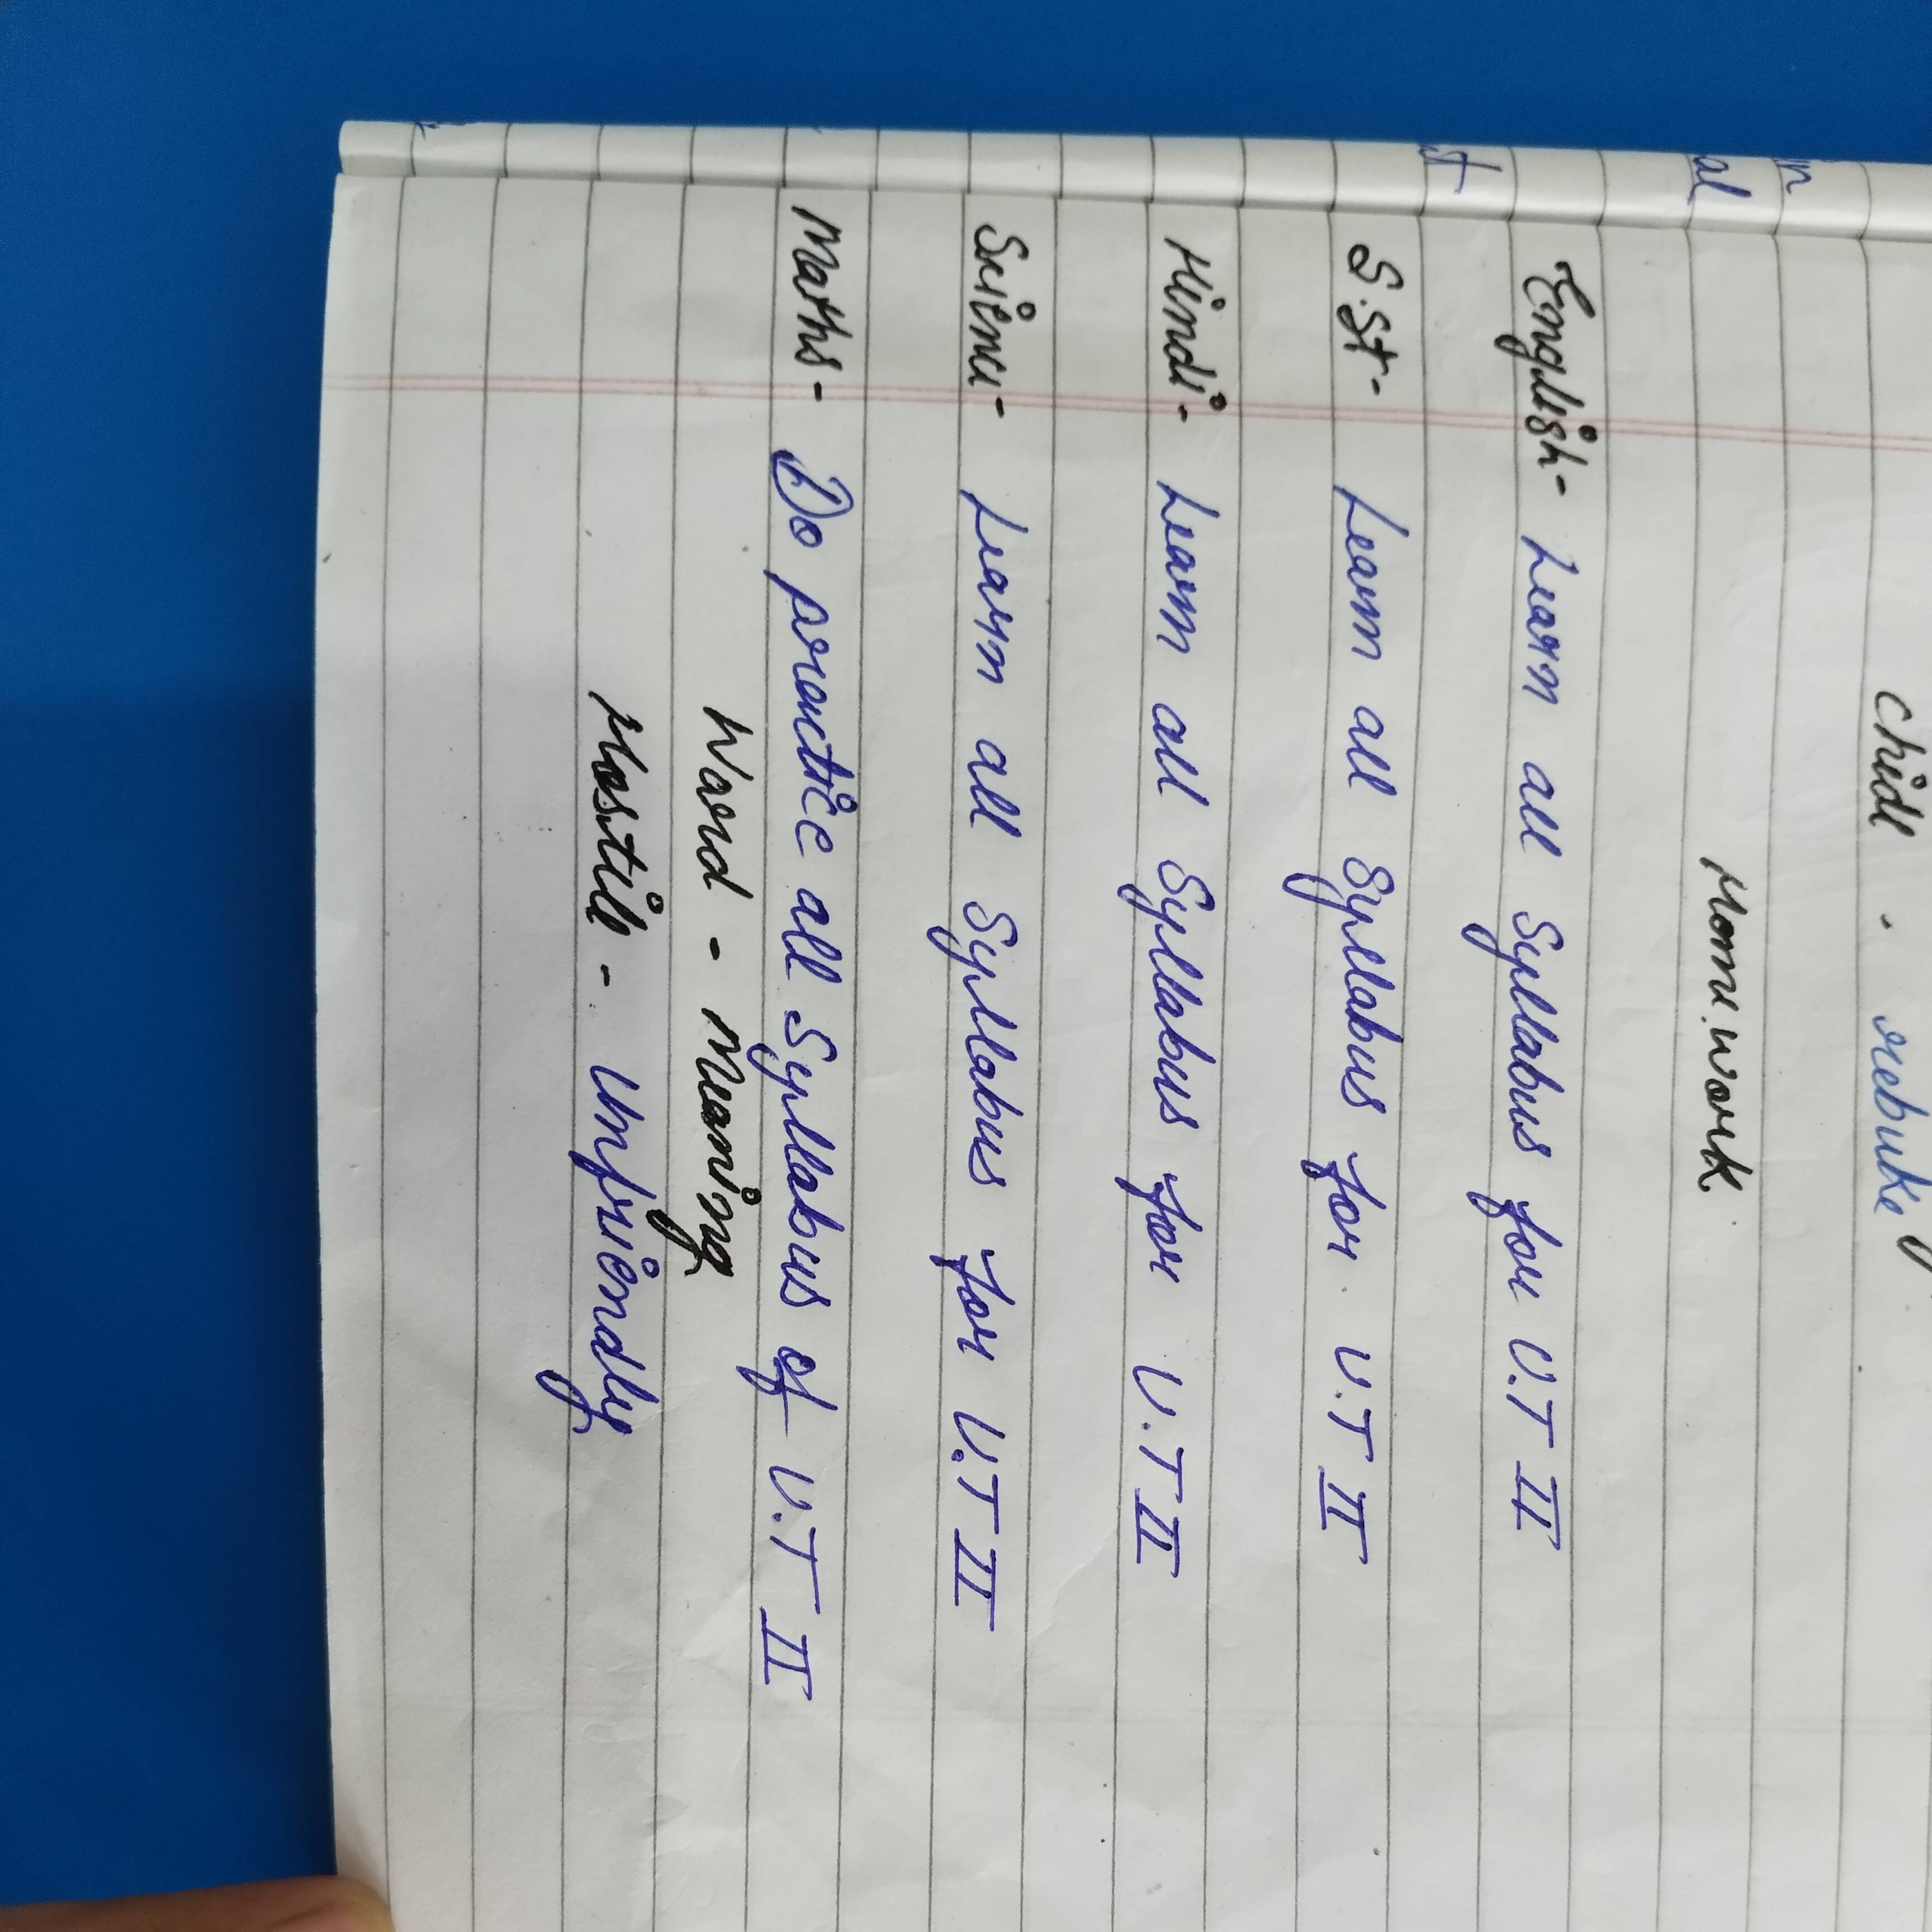 chide - rebuke
Home work
English- Learn all Syllabus for U.T II
S.St- Learn all Syllabus for U.T II
Hindi- Learn all Syllabus for U.T II
Science- Learn all Syllabus for U.T II
Maths- Do practice all Syllabus of U.T II
Word - Meaning
Hostile - Unfriendly